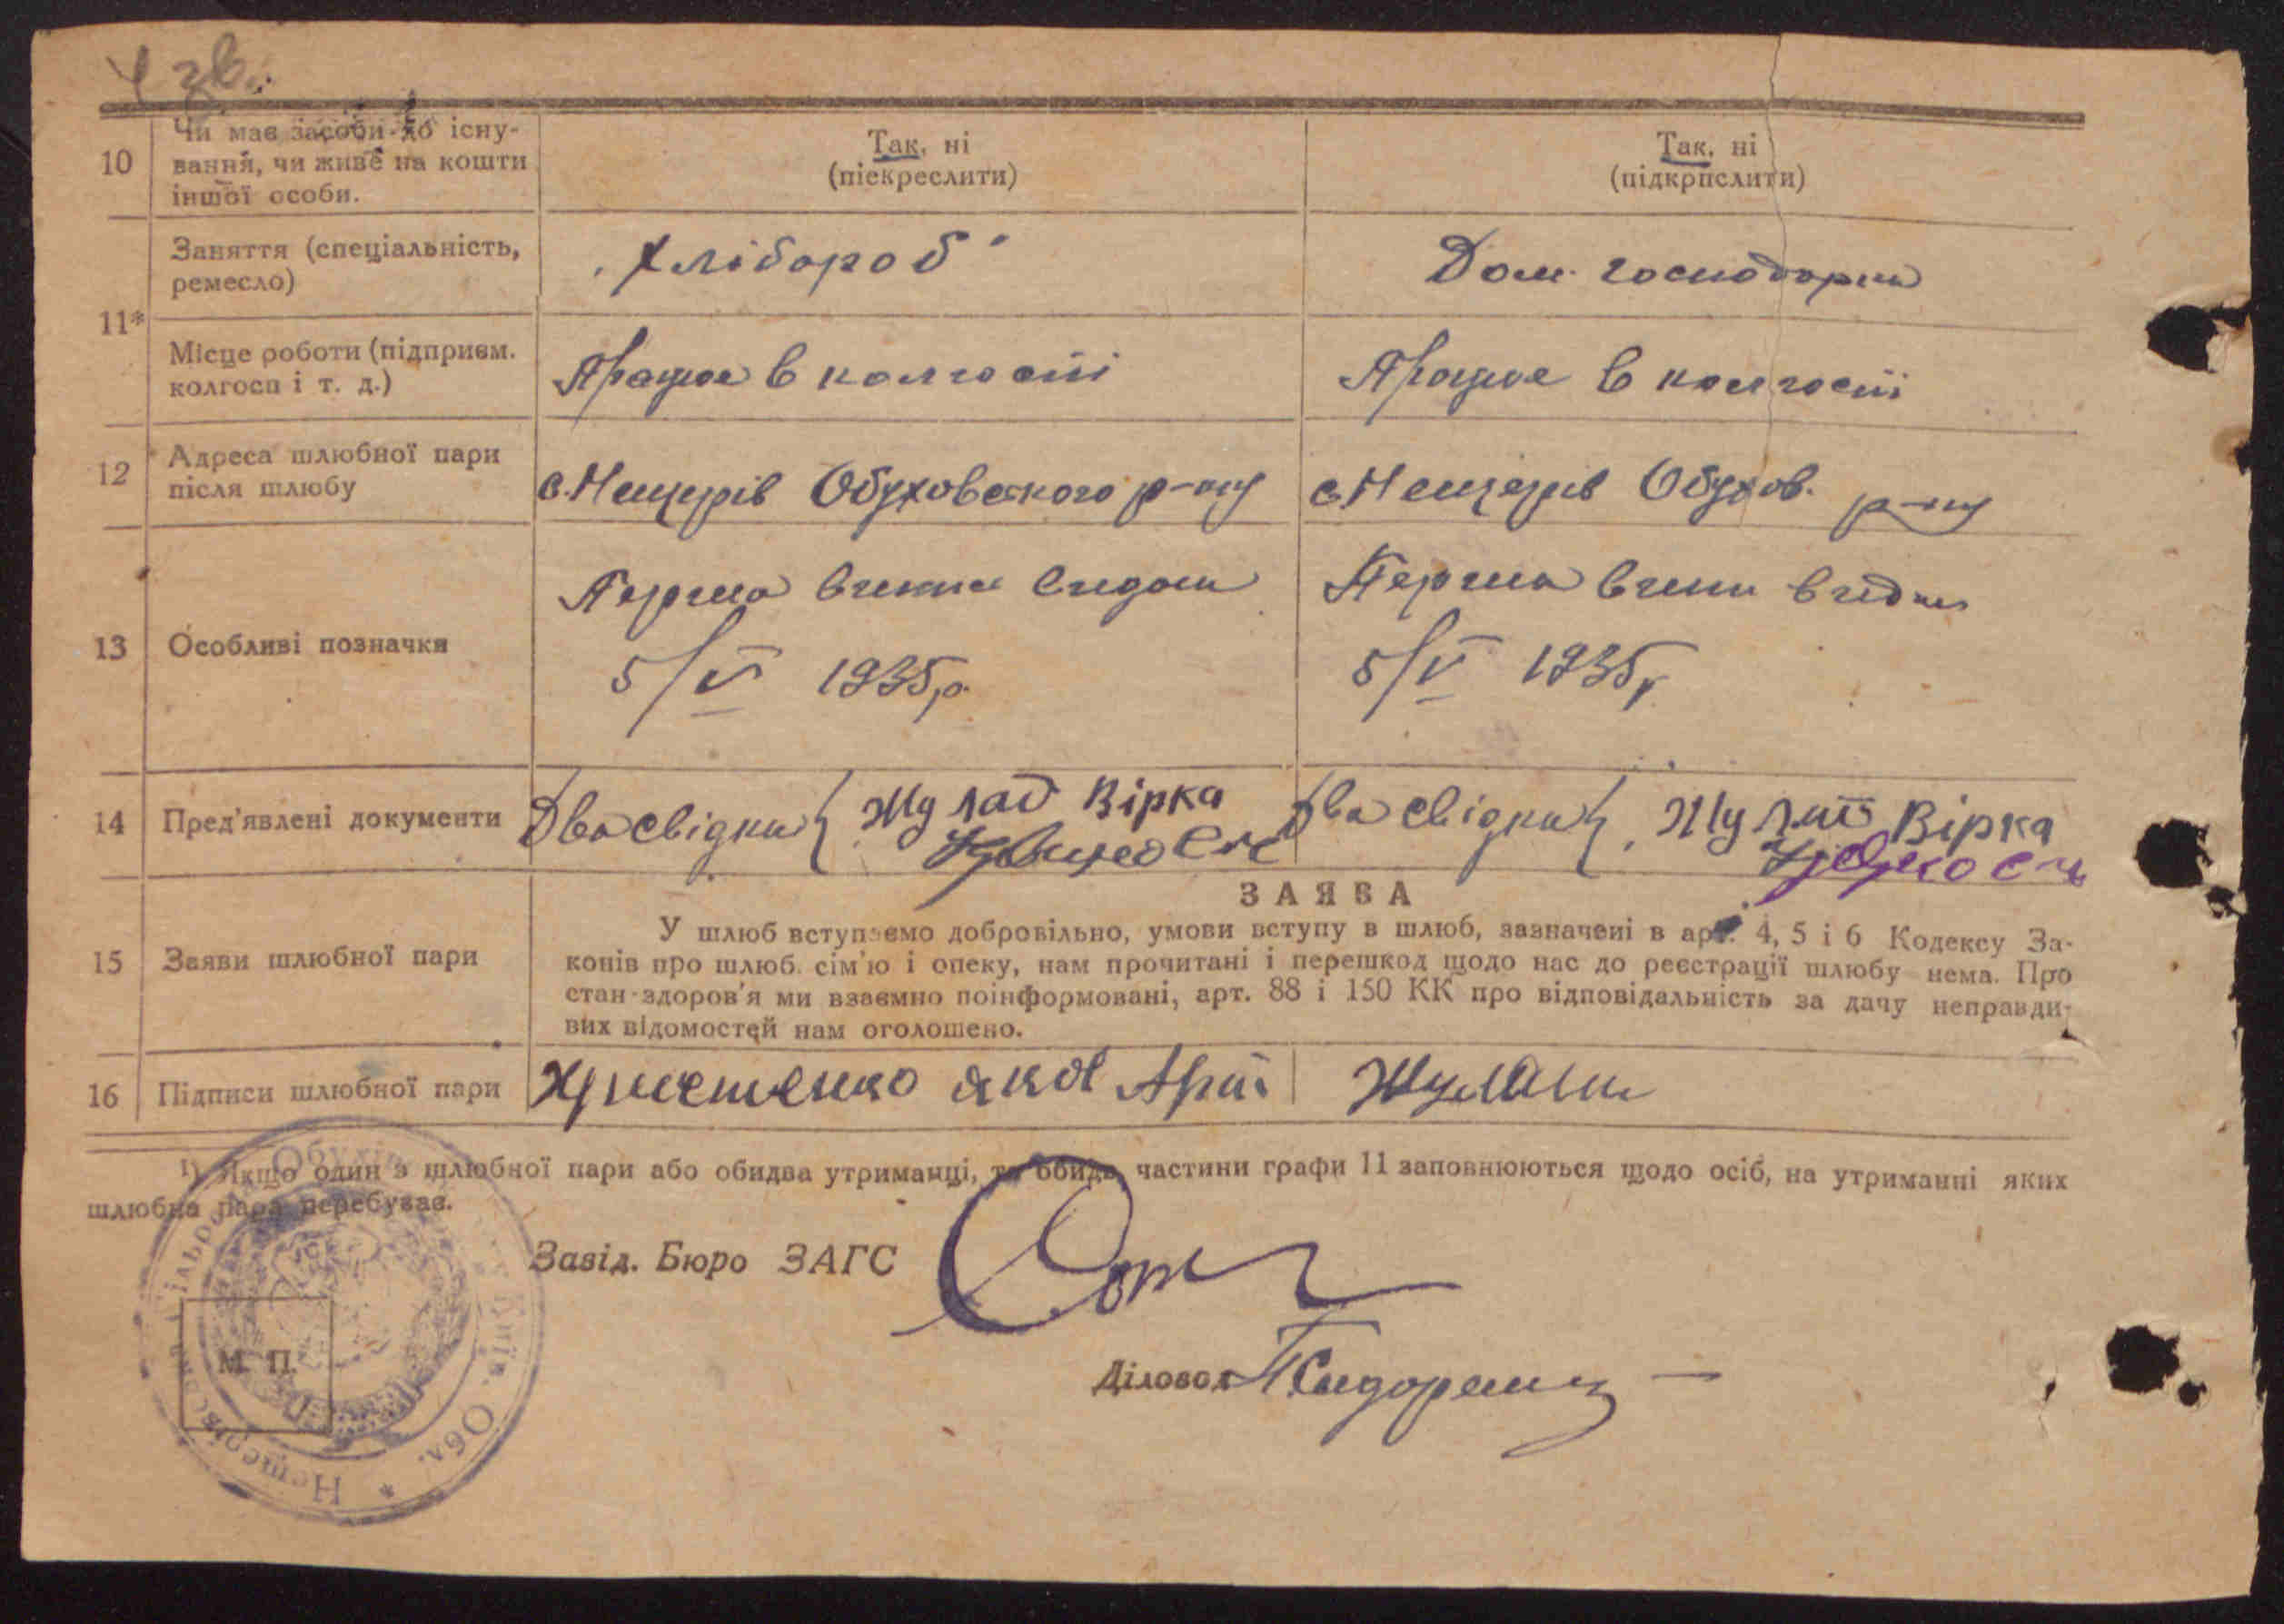 4 зв.
10
Чи має засоби до існу-
вання, чи живе на кошти
іншої особи.
Так, ні
(піекреслити)
Так, ні
(підкрпслити)
11*
Заняття (спеціальність,
ремесло)
Хлібороб
Дом. господарка
Місце роботи (підприєм.
колгосп і т. д.)
Працює в колгоспі
Працює в колгоспі
12
Адреса шлюбної пари
після шлюбу
с. Нещерів Обуховского р-ну
с. Нещерів Обухов. р-ну
13
Особливі позначки
Перша
Перша
5/V 1935р.
5/V 1935р
14
Пред'явлені документи
Два свідки Жулад Вірка
Два свідки Вірка
15
Заяви шлюбної пари
ЗАЯВА
У шлюб вступаємо добровільно, умови вступу в шлюб, зазначені в арт. 4, 5 і 6 Кодексу За-
конів про шлюб. сім'ю і опеку, нам прочитані і перешкод щодо нас до реєстрації шлюбу нема. Про
стан-здоров'я ми взаємно поінформовані, арт. 88 і 150 КК про відповідальність за дачу неправди-
вих відомостей нам оголошено.
16
Підписи шлюбної пари
Христенко яков
1) Якщо один з шлюбної пари або обидва утриманці, то обидв частини графи 11 заповнюються щодо осіб, на утриманні яких
шлюбна пара перебуває.
Завід. Бюро ЗАГС
Діловод
М. П.
Обл.